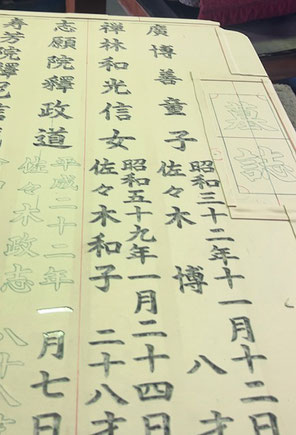 墓誌
廣博善童子
昭和三十二年十一月十二日
佐々木 博 八才
禅林和光信女
昭和五十九年一月二十四日
佐々木和子 二十八才
志願院釋政道
平成二十二年 月七日
佐々木政志 八十八才
寿芳院釋